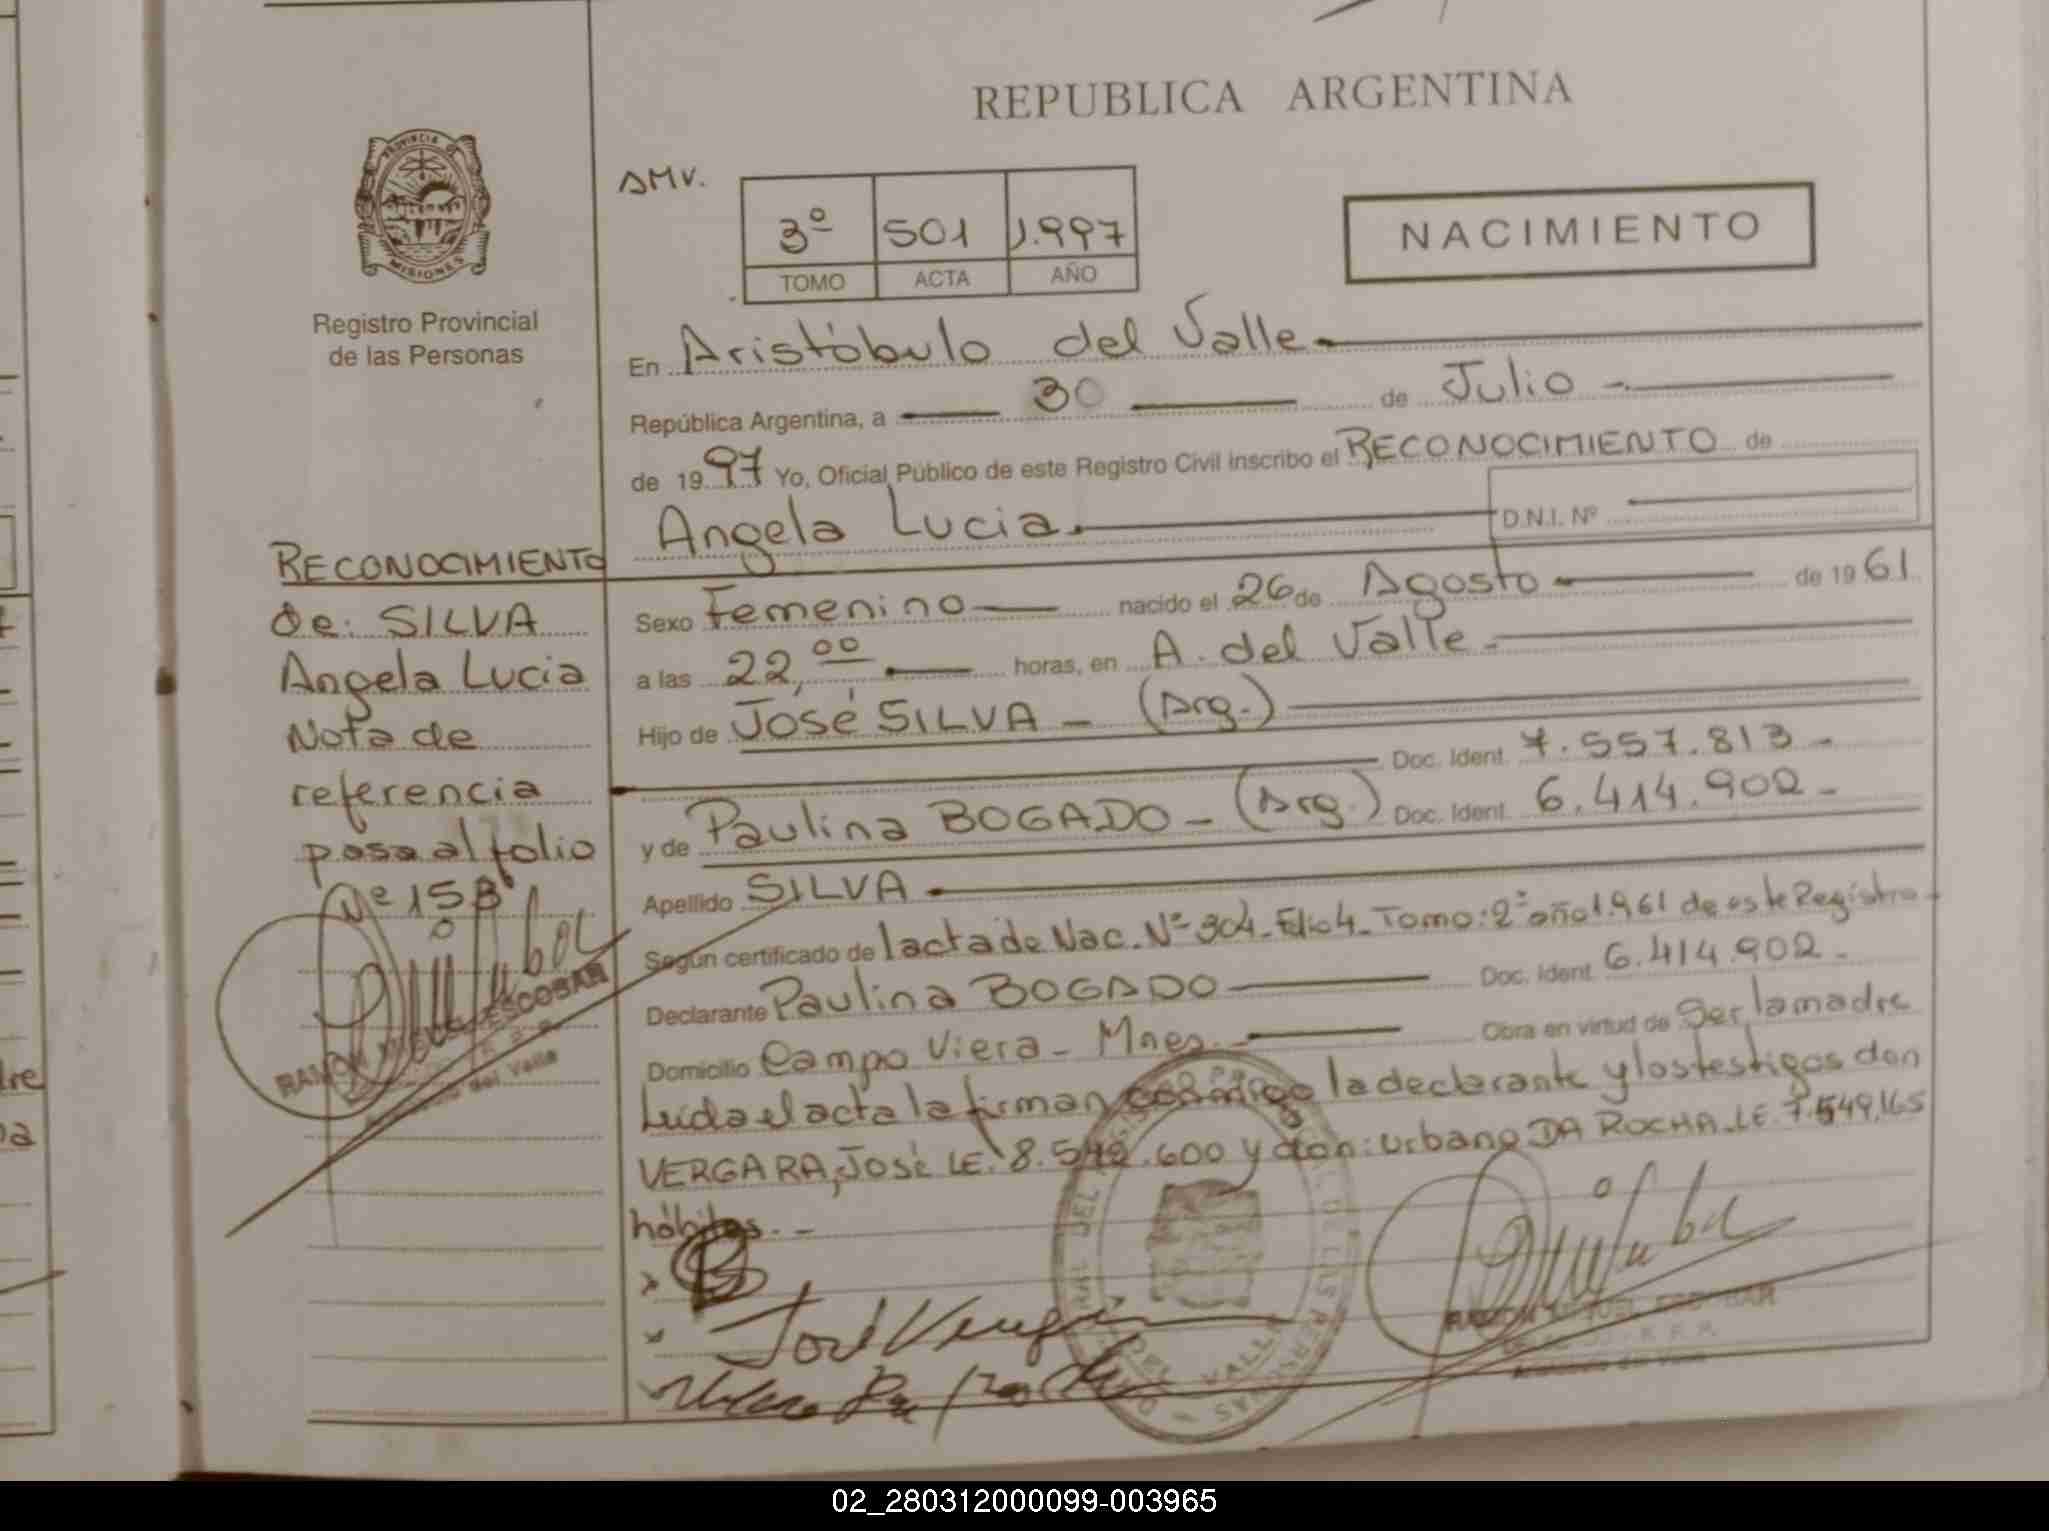 REPUBLICA ARGENTINA
PROVINCIA DE
MISIONES
Registro Provincial
de las Personas
AMV.
3º 501 1.997
TOMO ACTA AÑO
NACIMIENTO
En Aristóbulo del Valle
República Argentina, a 30 de Julio
de 1997 Yo, Oficial Público de este Registro Civil inscribo el RECONOCIMIENTO de
Angela Lucia. D.N.I. Nº
Sexo Femenino nacido el 26 de Agosto de 1961
a las 22,00 horas, en A. del Valle
Hijo de José SILVA - (Arg.)
Doc. Ident. 7.557.813-
y de Paulina BOGADO - (Arg.) Doc. Ident. 6.414.902-
Apellido SILVA
Según certificado de lacta de Nac. Nº 304- Folio 4- Tomo: 2º año 1.961 de este Registro-
Declarante Paulina BOGADO Doc. Ident. 6.414.902-
Domicilio Campo Viera - Mnes. Obra en virtud de Ser la madre
Leida el acta la firman conmigo la declarante y los testigos don
VERGARA, José LE. 8.542.600 y don: Urbano DA ROCHA- LE. 7.549.165
hábiles. -
RECONOCIMIENTO
de: SILVA
Angela Lucia
Nota de
referencia
pasa al folio
Nº 158
RAMON MIGUEL ESCOBAR
del Valle
José Vergara
RAMON MIGUEL ESCOBAR
02_280312000099-003965